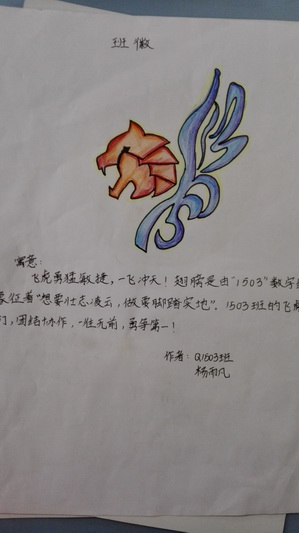 班徽
寓意:
飞虎勇猛敏捷,一飞冲天!翅膀是由“1503”数字
象征着“想要壮志凌云,做需脚踏实地”。1503班的飞虎
们,团结协作,一往无前,勇争第一!
作者:Q1503班
杨雨凡